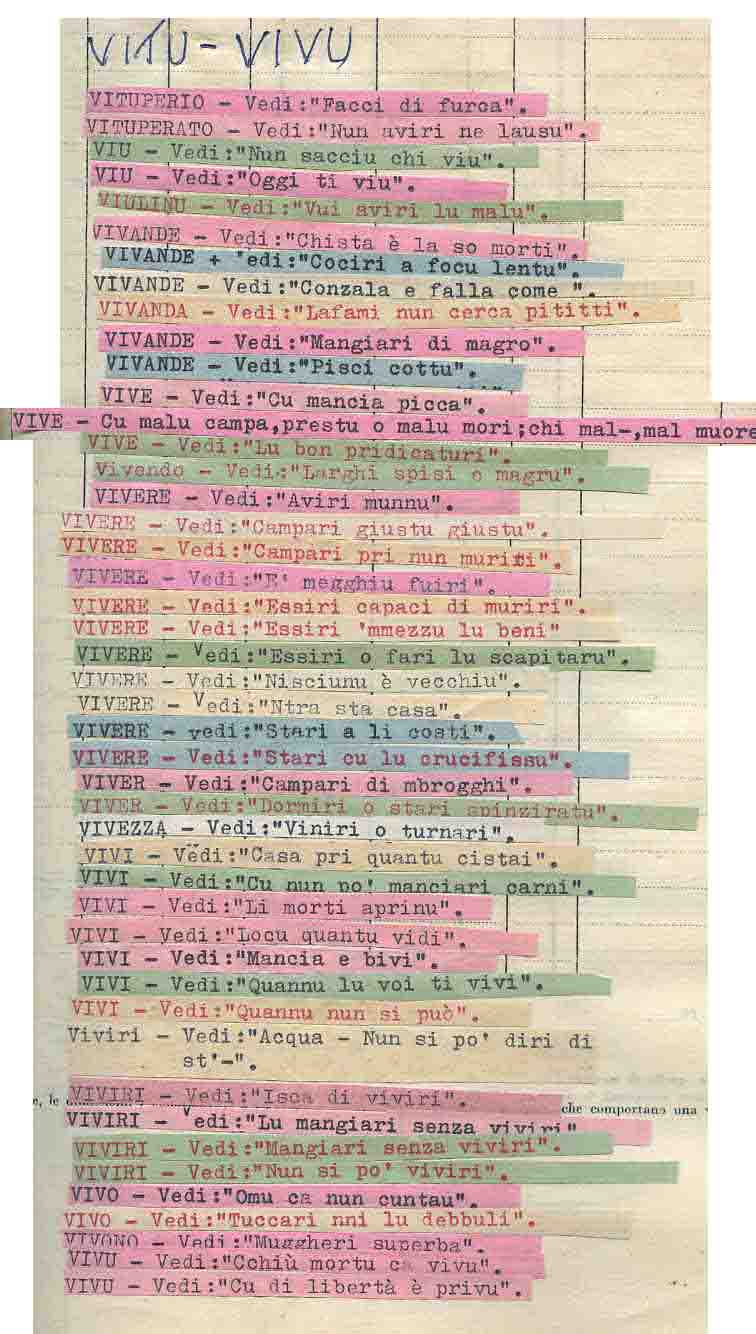 VITU - VIVU
VITUPERIO - Vedi:"Facci di furca".
VITUPERATO - Vedi:"Nun aviri ne lausu".
VIU - Vedi:"Nun sacciu chi viu".
VIU - Vedi:"Oggi ti viu".
VIULINU - Vedi:"Vui aviri lu malu".
VIVANDE - Vedi:"Chista è la so morti".
VIVANDE + 'edi:"Cociri a focu lentu".
VIVANDE - Vedi:"Conzala e falla come ".
VIVANDA - Vedi:"Lafami nun cerca pititti".
VIVANDE - Vedi:"Mangiari di magro".
VIVANDE - Vedi:"Pisci cottu".
VIVE - Vedi:"Cu mancia picca".
VIVE - Cu malu campa,prestu o malu mori;chi mal-,mal muore
VIVE - Vedi:"Lu bon pridicaturi".
Vivendo - Vedi:"Larghi spisi e magru".
VIVERE - Vedi:"Aviri munnu".
VIVERE - Vedi:"Campari giustu giustu".
VIVERE - Vedi:"Campari pri nun muriri".
VIVERE - Vedi:"E' megghiu fuiri".
VIVERE - Vedi:"Essiri capaci di muriri".
VIVERE - Vedi:"Essiri 'mmezzu lu beni"
VIVERE - Vedi:"Essiri o fari lu scapitaru".
VIVERE - Vedi:"Nisciunu è vecchiu".
VIVERE - Vedi:"Ntra sta casa".
VIVERE - vedi:"Stari a li costi".
VIVERE - Vedi:"Stari cu lu crucifissu".
VIVER - Vedi:"Campari di mbrogghi".
VIVER - Vedi:"Dormiri o stari spinziratu".
VIVEZZA - Vedi:"Viniri o turnari".
VIVI - Vedi:"Casa pri quantu cistai".
VIVI - Vedi:"Cu nun po' manciari carni".
VIVI - Vedi:"Li morti aprinu".
VIVI - Vedi:"Locu quantu vidi".
VIVI - Vedi:"Mancia e bivi".
VIVI - Vedi:"Quannu lu voi ti vivi".
VIVI - Vedi:"Quannu nun si può".
Viviri - Vedi:"Acqua - Nun si po' diri di
st'-".
VIVIRI - Vedi:"Isca di viviri".
e, le
che comportano una
VIVIRI - Vedi:"Lu mangiari senza viviri"
VIVIRI - Vedi:"Mangiari senza viviri".
VIVIRI - Vedi:"Nun si po' viviri".
VIVO - Vedi:"Omu ca nun cuntau".
VIVO - Vedi:"Tuccari nni lu debbuli".
VIVONO - Vedi:"Muggheri superba".
VIVU - Vedi:"Cchiù mortu ca vivu".
VIVU - Vedi:"Cu di libertà è privu".